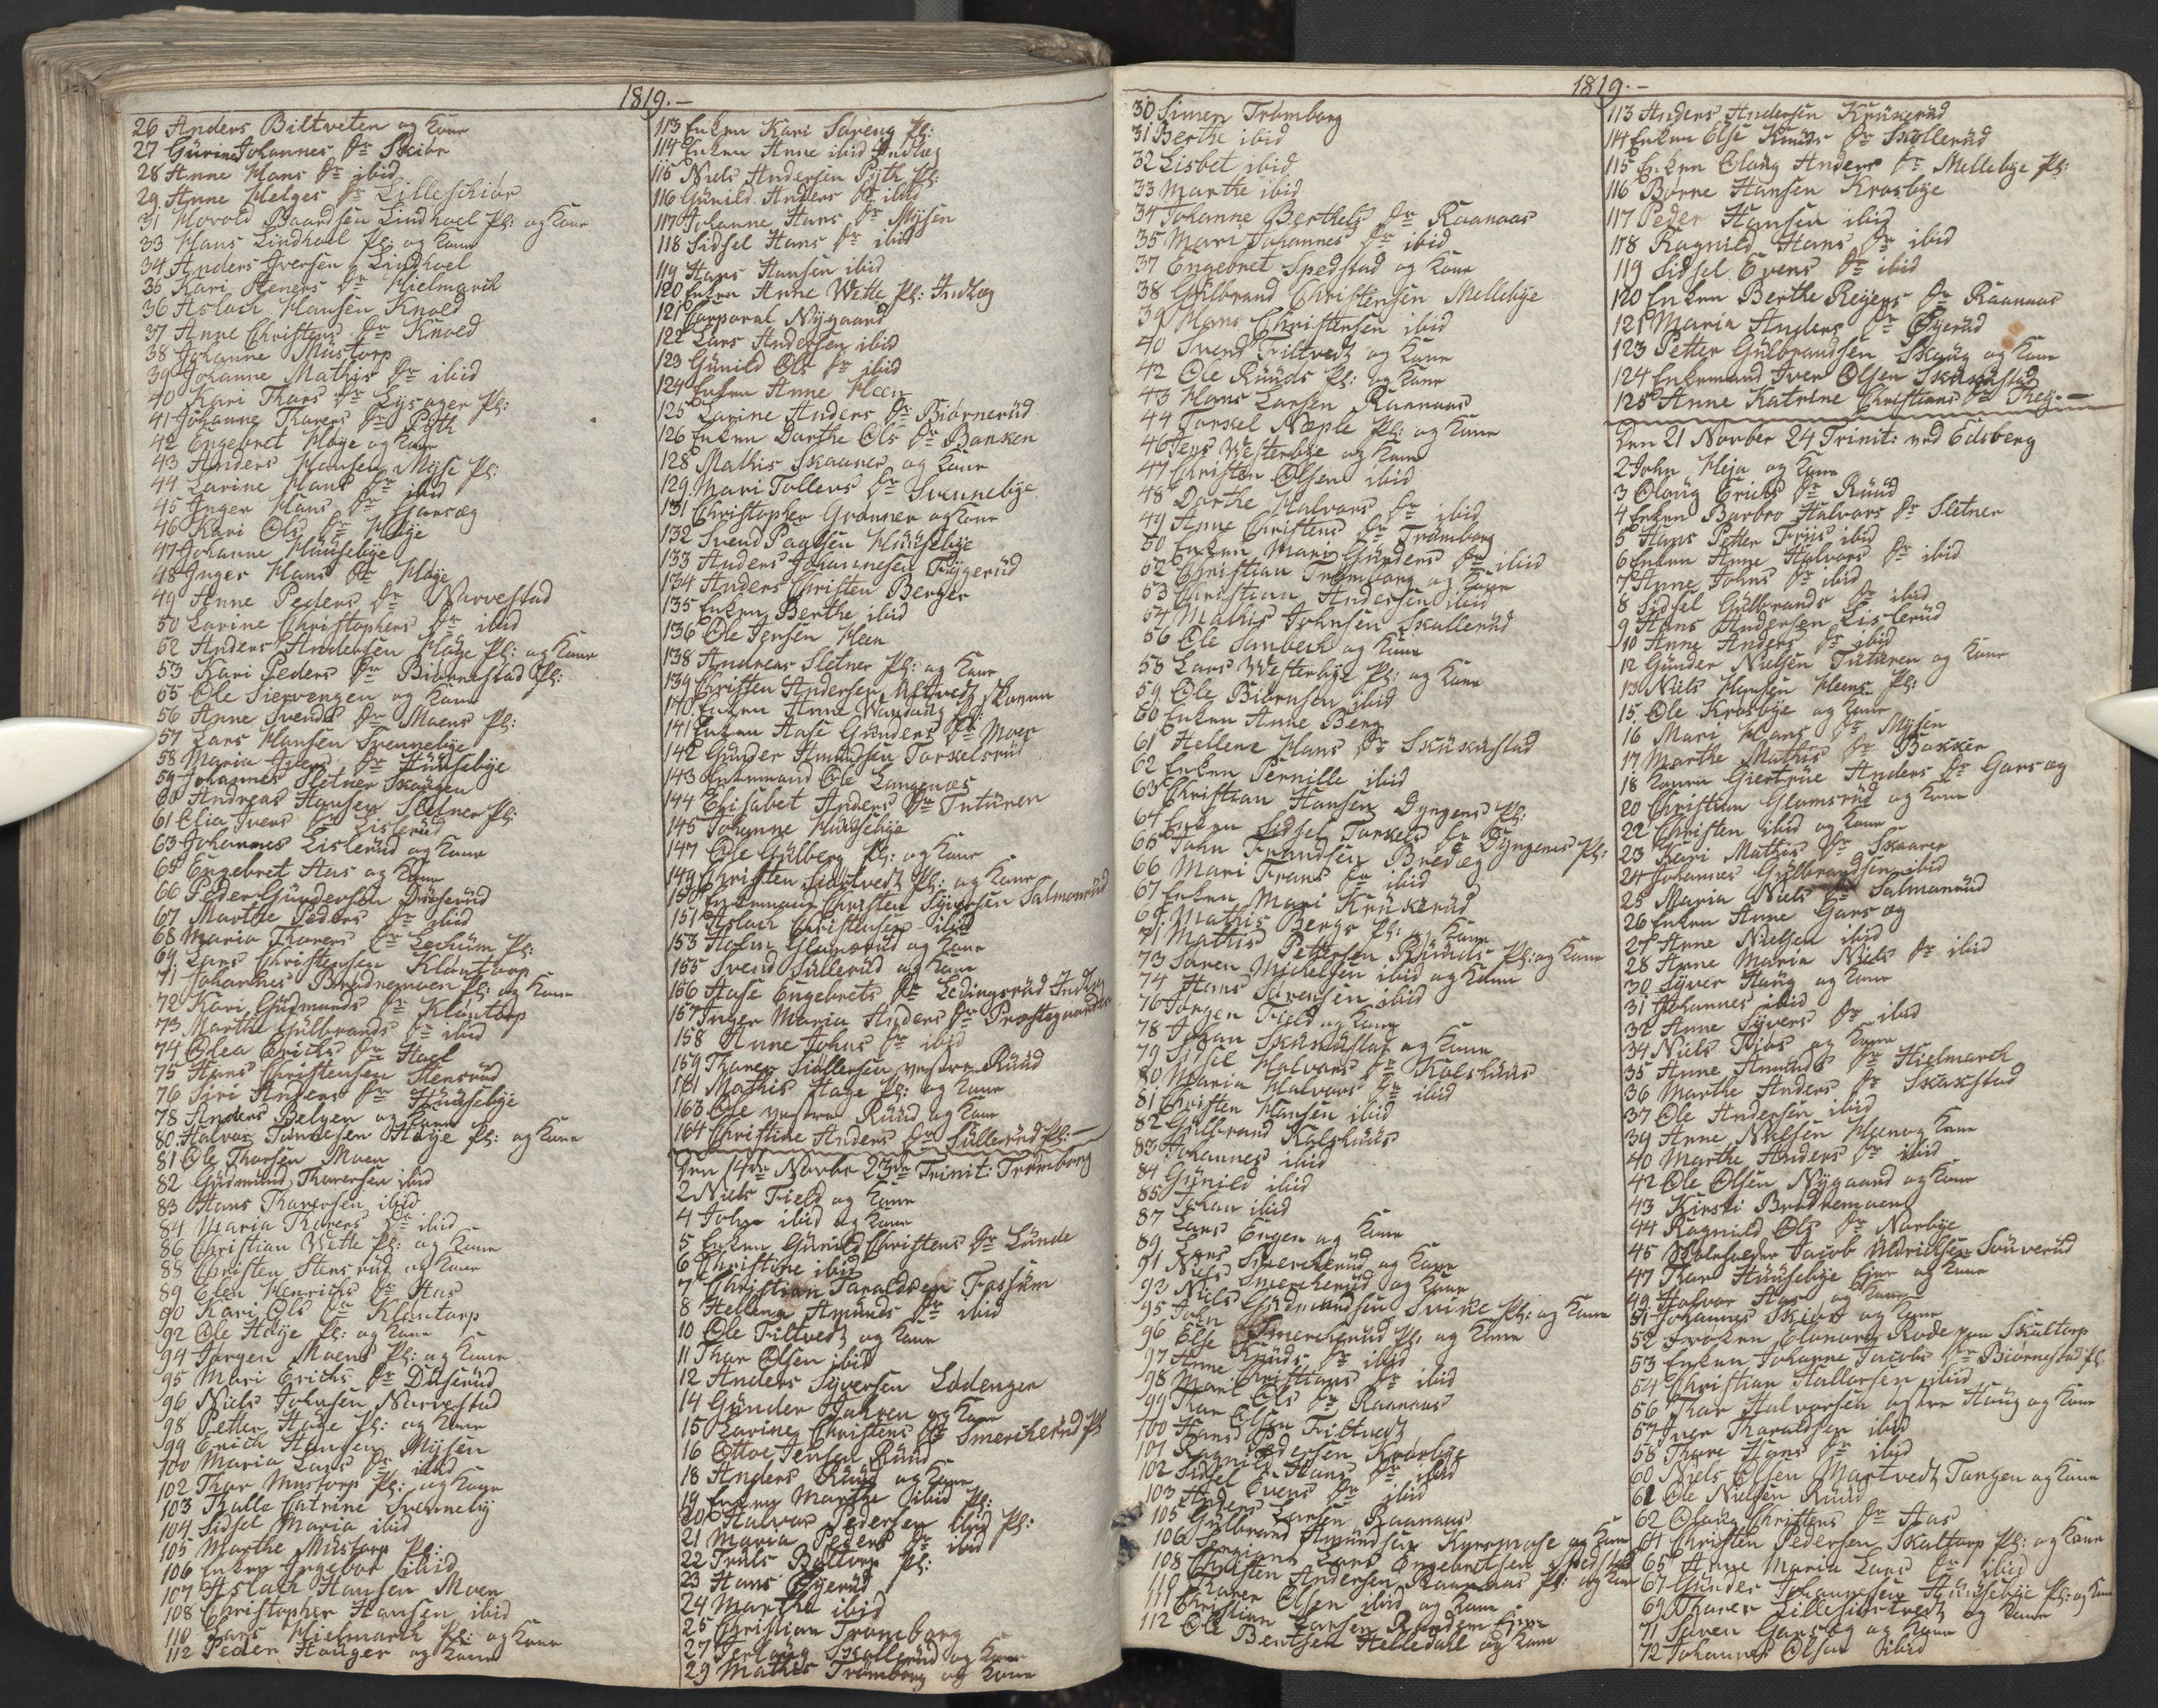 1819.-
26 Anders Biltveten og Kone
27 Gurine Johannes Dr Skiør
28 Anne Hans Dr ibid
29 Anne Helges Dr Lilleskiør
31 Haavold Baardsen Lindhoel Pl: og Kone
33 Hans Lindhoel Pl: og Kone
34 Anders Iversen Lindhoel
35 Kari Steners Dr Hielmarck
36 Aslach Hansen Knold
37 Anne Christens Dr Knold
38 Johanne Mustorp
39 Johanne Mathis Dr ibid
40 Kari Thors Dr Lysager Pl:
41 Johanne Thorers Dr Puth
42 Engebret Høye og Kone
43 Anders Hansen Myse Pl:
44 Larine Hans Dr ibid
45 Inger Hans Dr Garseg
46 Kari Ols Dr Høye
47 Johanne Huusebye
48 Inger Hans Dr Høye
49 Anne Peders Dr Narvestad
50 Larine Christophers Dr ibid
52 Anders Andersen Høye Pl: og Kone
53 Kari Peders Dr Biørnestad Pl:
55 Ole Siervengen og Kone
56 Anne Svends Dr Moens Pl:
57 Lars Hansen Svennebye
58 Maria Ivers Dr Huusebye
59 Johannes Sletner Skaugen
60 Andreas Hansen Sletner Pl:
61 Elia Ivers Dr Lislerud
63 Johannes Lislerud og Kone
65 Engebret Aas og Kone
66 Peder Gundersen Duserud
67 Marthe Peders Dr ibid
68 Maria Thorers Dr Lechum Pl:
69 Lars Christensen Kløntorp
71 Johannes Brødremoen Pl: og Kone
72 Kari Gudmunds Dr Kløntorp
73 Marthe Gulbrands Dr ibid
74 Olea Erichs Dr Hael
75 Hans Christensen Stensrud
76 Siri Anders Dr Huusebye
78 Anders Belgen og Kone
80 Halvor Høye Pl: og Kone
81 Ole Thorsen Moen
82 Gudmund Thorersen ibid
83 Hans Thorersen ibid
84 Maria Thorers Dr ibid
86 Christian Wette Pl: og Kone
88 Christen Stensrud og Kone
89 Elen Henrichs Dr Aas
90 Kari Ols Dr Kløntorp
92 Ole Høye Pl: og Kone
94 Jørgen Moens Pl: og Kone
95 Mari Erichs Dr Duserud
96 Niels Johnsen Narvestad
98 Petter Høye Pl: og Kone
99 Erich Hansen Mysen
100 Maria Lars Dr ibid
102 Thor Mustorp Pl: og Kone
103 Kalle Catrine Svenneby
104 Sidsel Maria ibid
105 Marthe Mustorp Pl:
106 Enken Ingebor ibid
107 Aslach Hansen Moen
108 Christopher Hansen ibid
110 Lars Hielmarck Pl: og Kone
112 Peder Hauger og Kone
113 Enken Kari Sareng Pl:
114 Enken Anne ibid Indlæg
115 Niels Andersen Puth Pl:
116 Gunild Anders Dr ibid
117 Johanne Hans Dr Mysen
118 Sidsel Hans Dr ibid
119 Hans Hansen ibid
120 Enken Anne Wette Pl: Indlæg
121 Corporal Nygaard
122 Lars Andersen ibid
123 Gunild Ols Dr ibid
124 Enken Anne Heen
125 Larine Anders Dr Biørnerud
126 Enken Dorthe Ols Dr Banken
128 Mathis Skaarer og Kone
129 Mari Tollevs Dr Svennebye
131 Christopher Grønner og Kone
132 Svend Paulsen Huusebye
133 Anders Johannesen Frygerud
134 Anders Christen Berger
135 Enken Berthe ibid
136 Ole Jensen Heen
138 Andreas Sletner Pl: og Kone
139 Christen Andersen Mortvedt Skoven
140 Enken Anne
141 Enken Aase Gunders Dr Moer
142 Gunder Amundsen Torkelsrud
143 Enkemand Ole Langenæs
144 Elisabet Anders Dr Tuturen
145 Johanne Huusebye
147 Ole Gulberg Pl: og Kone
149 Christen Pl: og Kone
150 Enkemand Christen Syversen Salmonrud
151 Aslach Christensen ibid
153 Holm Glomsrud og Kone
155 Svend Sullerud og Kone
156 Aase Engebrets Dr Ledingsrud Indlæg
157 Inger Maria Anders Dr Præstegaarden
158 Anne Johns Dr ibid
159 Thorer Siøllersen vestre Ruud
161 Mathis Hage Pl: og Kone
163 Ole vestre Ruud og Kone
164 Christine Anders Dr Sullerud Pl:
Den 14de Novbr 23de Trinit: Trømborg
2 Niels Field og Kone
4 John ibid og Kone
5 Enken Gunild Christens Dr Lunde
6 Christine ibid
7 Christian Taraldsen Fossum
8 Hellene Amunds Dr ibid
10 Ole Filtvedt og Kone
11 Thor Olsen ibid
12 Anders Syversen Lødengen
14 Gunder og Kone
15 Karine Christens Dr Smerckerud Pl
16 Ottoe Jensen Ruud
18 Anders Ruud og Kone
19 Enken Marthe ibid Pl:
20 Halvor Pedersen ibid Pl:
21 Maria Peders Dr ibid
22 Truls Boltorp Pl:
23 Hans Øyerud
24 Marthe ibid
25 Christian Trømborg
27 Skollerud og Kone
29 Mathis Trømborg og Kone
1819.-
30 Simen Trømborg
31 Berthe ibid
32 Lisbet ibid
33 Marthe ibid
34 Johanne Berthels Dr Raanaas
35 Mari Johannes Dr ibid
37 Engebret Spedstad og Kone
38 Gulbrand Christensen Mellebye
39 Hans Christensen ibid
40 Svend Filtvedt og Kone
42 Ole Ruuds Pl: og Kone
43 Hans Larsen Raanaas
44 Torkel Næple Pl: og Kone
46 Jens Westerbye og Kone
47 Christen Olsen ibid
48 Dorthe Halvors Dr ibid
49 Anne Christens Dr Trømborg
50 Enken Mari Gunders Dr ibid
52 Christian Trømborg og Kone
53 Christian Andersen ibid
54 Mathis Johnsen Skallerud
56 Ole Sambech og Kone
58 Lars Westerbye Pl: og Kone
59 Ole Biørnsen ibid
60 Enken Anne Berg
61 Hellene Hans Dr Skukustad
62 Enken Pernille ibid
63 Christian Hansen Dyngens Pl:
64 Enken Sidsel Torkels Dr Dyngens Pl:
65 John Frandsen Bredeg
66 Mari Frans Dr ibid
67 Enken Mari Krukerud
69 Mathis Bergs Pl: og Kone
71 Mathis Pettersen Ruuds Pl: og Kone
73 Søren Michelsen ibid og Kone
74 Hans Sørensen ibid
76 Jørgen Field og Kone
78 Johan Skukustad og Kone
79 Sidsel Halvors Dr Kolshuus
80 Maria Halvors Dr ibid
81 Christen Hansen ibid
82 Gulbrand Kolshuus
83 Johannes ibid
84 Gunild ibid
85 Johan ibid
87 Lars Engen og Kone
89 Lars Smerckerud og Kone
91 Niels Smerckerud og Kone
93 Niels Gudmundsen Svike Pl: og Kone
95 John Smerckerud Pl: og Kone
96 Else Knuds Dr ibid
97 Anne Christians Dr ibid
98 Mari Ols Dr Raanaas
99 Thor Olsen Filtvedt
100 Hans Pedersen Krosbye
101 Ragnild Hans Dr ibid
102 Sidsel Evens Dr ibid
103 Anders Larsen Raanaas
105 Gulbrand Amundsen Korsmose og Kone
106 Sergiant Lars Engebretsen Spedstad
108 Christen Andersen Raanaas Pl: og Kone
110 Thorer Olsen ibid og Kone
111 Christian Larsen
112 Ole Bentsen Helledall og Kone
113 Anders Andersen Krukerud
114 Enken Else Knuds Dr Skollerud
115 Enken Oloug Anders Dr Mellebye Pl:
116 Børne Hansen Krosbye
117 Peder Hansen ibid
118 Ragnild Hans Dr ibid
119 Sidsel Evens Dr ibid
120 Enken Berthe Reyers Dr Raanaas
121 Maria Anders Dr Øyerud
123 Petter Gulbrandsen Skaug og Kone
124 Enkemand Iver Olsen Skukustad
125 Anne Katrine Christians Dr Theg.-
Den 21 Novber 24 Trinit: ved Edsberg
2 John Heja og Kone
3 Oloug Erichs Dr Ruud
4 Enken Barbro Halvors Dr Sletner
5 Hans Petter Friis ibid
6 Enken Anne Halvors Dr ibid
7 Anne Johns Dr ibid
8 Sidsel Gulbrands Dr ibid
9 Hans Andersen Lislerud
10 Anne Anders Dr ibid
12 Gunder Nielsen Tuturen og Kone
13 Niels Hansen Heens Pl:
15 Ole Krosbye og Kone
16 Mari Hans Dr Mysen
17 Marthe Mathis Dr Bakker
18 Konen Giertrue Anders Dr Garseg
20 Christian Glomsrud og Kone
22 Christen ibid og Kone
23 Kari Mathis Dr Skaarer
24 Johannes Gulbrandsen ibid
25 Maria Niels Dr Salmonrud
26 Enken Anne Garseg
27 Anne Nielsen ibid
28 Anne Maria Niels Dr ibid
30 Syver Haug og Kone
31 Johannes ibid
32 Anne Syvers Dr ibid
34 Niels og Kone
35 Anne Amunds Dr Hielmarck
36 Marthe Anders Dr Skakstad
37 Ole Andersen ibid
39 Anne Nielsen Heen og Kone
40 Marthe Anders Dr ibid
42 Ole Olsen Nygaard og Kone
43 Kirsti Brødremoen
44 Ragnild Ols Dr Norbye
45 Skolelærer Jacob Uldrichsen Souverud
47 Thor Huusebye Eier og Kone
49 Halvor Aas og Kone
51 Johannes Skiør og Kone
52 Frøken Elonora Rode paa Skaltorp
53 Enken Johanne Jacobs Dr Biørnestad Pl
54 Christian Hallorsen ibid
56 Thor Halvorsen østre Haug og Kone
57 Iver Tharaldsen ibid
58 Thore Hans Dr ibid
60 Niels Olsen Martvedt Tangen og Kone
61 Ole Nielsen Ruud
62 Oloug Christens Dr Aas
64 Christen Pedersen Skaltorp Pl: og Kone
65 Anne Maria Lars Dr ibid
67 Gunder Johannesen Huusebye Pl: og Kone
69 Thorer Lillefiørtvedt og Kone
71 Søren Garseg og Kone
72 Johannes Olsen ibid